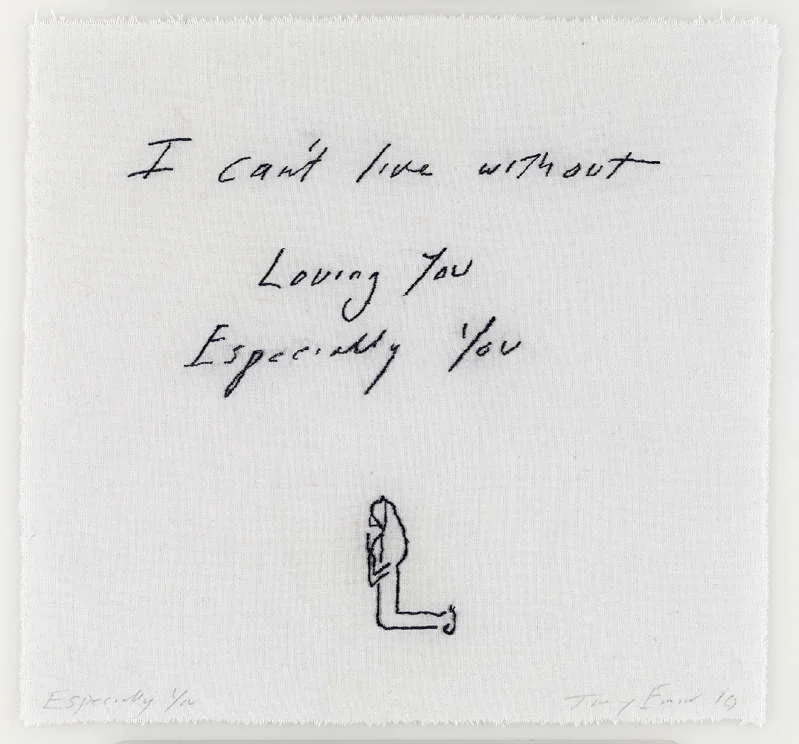 I can't live without
Loving You
Especially You
Especially You
Tracey Emin 10